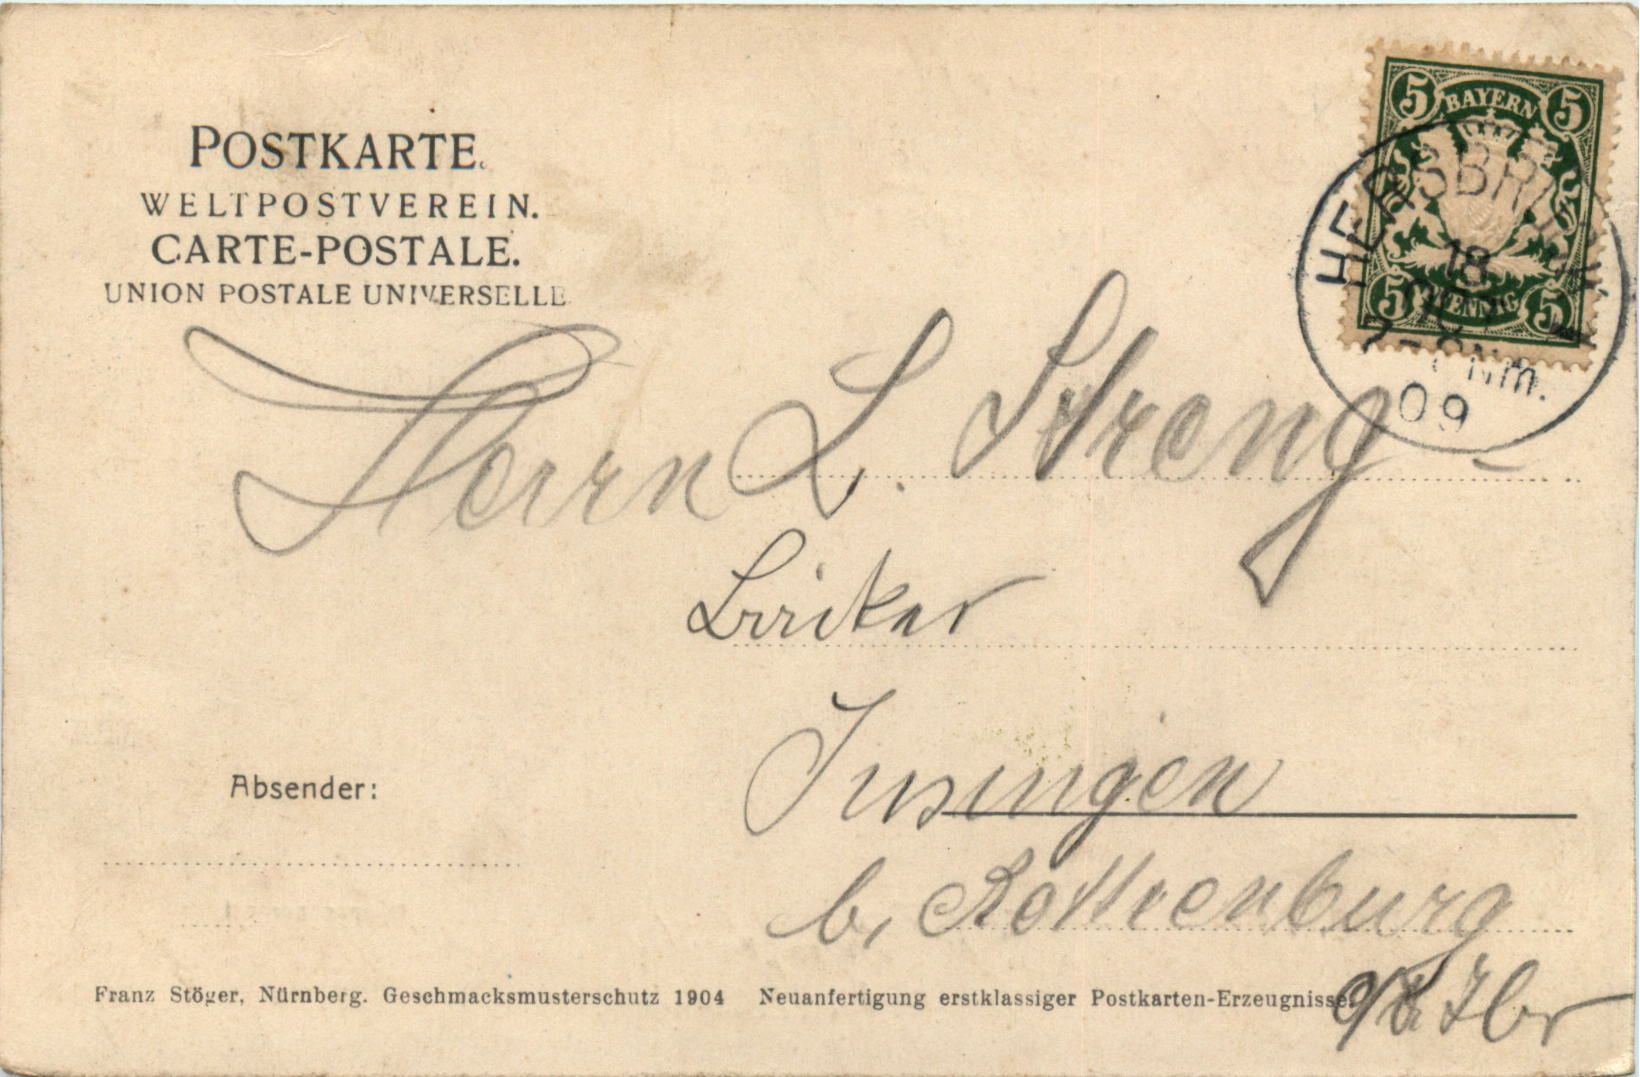 POSTKARTE.
WELTPOSTVEREIN.
CARTE-POSTALE.
UNION POSTALE UNIVERSELLE
5 BAYERN 5
5 PFENNIG 5
HERSBRUCK.
18
7-8 Nm.
09
Herrn L. Streng
Insingen
b. Rothenburg
Absender:
Franz Stöger, Nürnberg. Geschmacksmusterschutz 1904 Neuanfertigung erstklassiger Postkarten-Erzeugnisse.